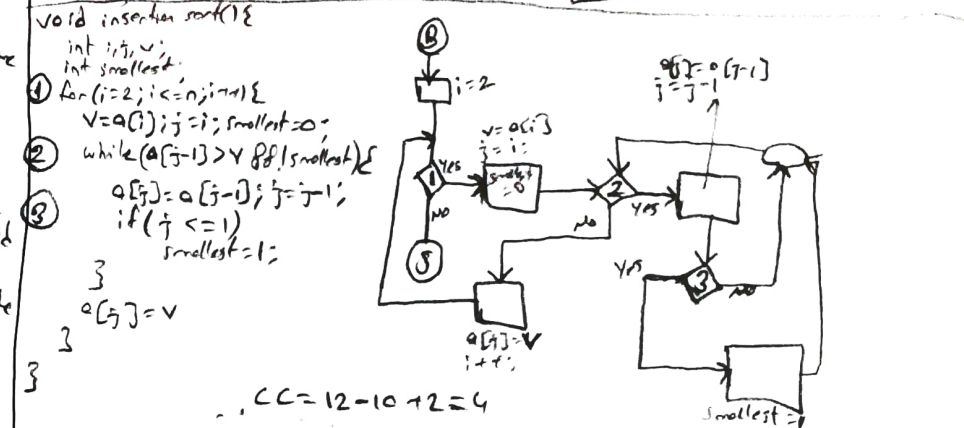 void insertion sort(){
int i,j,v;
int smallest;
1 for(i=2;i<=n;i++){
v=a[i];j=i;smallest=0;
2 while(a[j-1]>v && !smallest){
a[j]=a[j-1];j=j-1;
3 if(j<=1)
smallest=1;
}
a[j]=v
}
}
B
i=2
1
Yes
No
S
v=a[i]
j=i;
smallest
=0
2
Yes
No
a[j]=a[j-1]
j=j-1
3
Yes
No
a[j]=v
i++;
smallest=1
CC=12-10+2=4